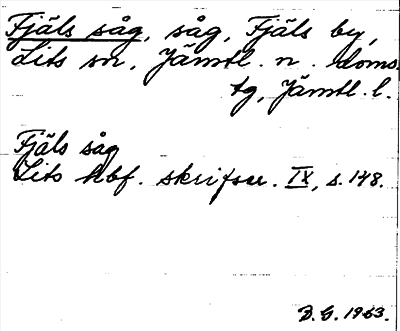 Fjäls såg, såg, Fjäls by,
Lits sn, Jämtl. n. doms.
tg, Jämtl. l.
Fjäls såg
Lits hbf. skrifser. IX, s. 148.
D. G. 1963.